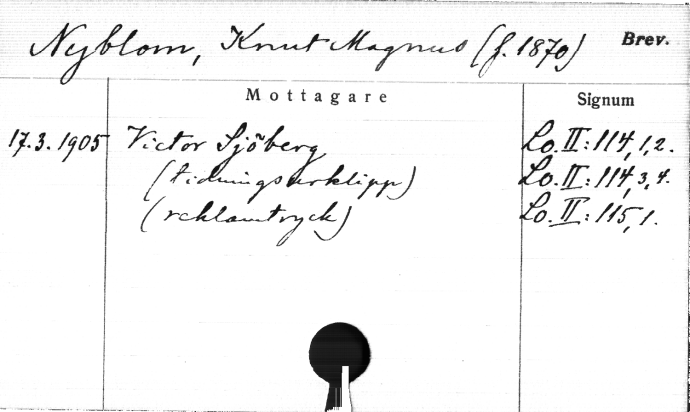 Nyblom, Knut Magnus (f. 1870) Brev.
Mottagare Signum
17.3.1905 Victor Sjöberg Lo.II:114,1,2.
(tidningsurklipp) Lo.II:114,3,4.
(reklamtryck) Lo.II:115,1.